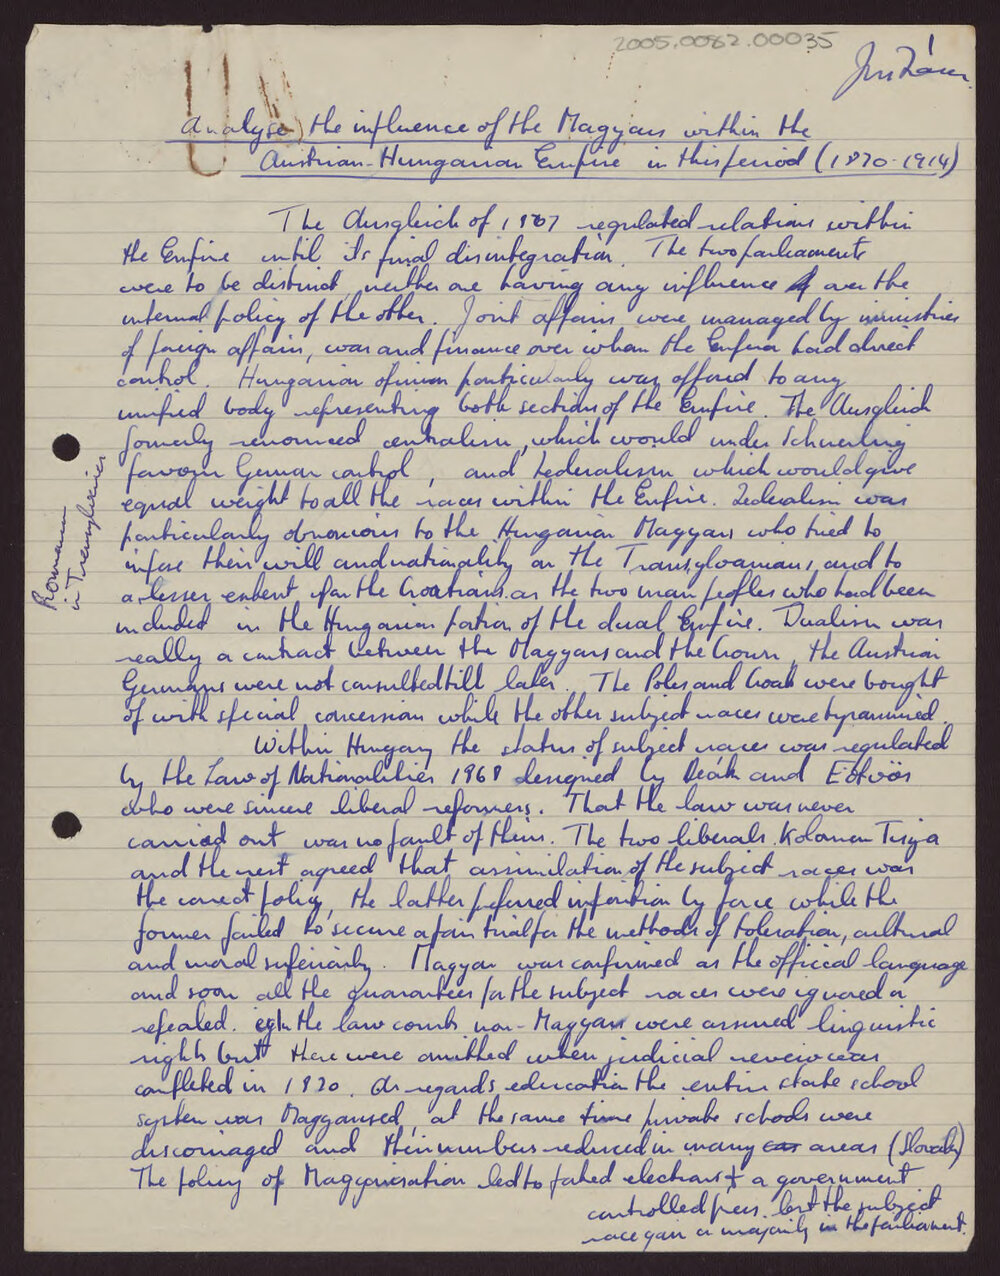 2005.0082.00035
Analyse the influence of the Magyars within the
Austrian-Hungarian Empire in this period (1870-1914)
The Ausgleich of 1867 regulated relations within
the Empire until its final disintegration. The two parliaments
were to be distinct, neither one having any influence over the
internal policy of the other. Joint affairs were managed by ministries
of foreign affairs, war and finance over whom the Emperor had direct
control. Hungarian opinion particularly was opposed to any
unified body representing both sections of the Empire. The Ausgleich
formerly renounced centralism, which would under Schmerling
favour German control, and Federalism which would give
equal weight to all the races within the Empire. Federalism was
particularly obnoxious to the Hungarian Magyars who tried to
impose their will and nationality on the Transylvanians, and to
a lesser extent on the Croatians as the two main peoples who had been
included in the Hungarian portion of the dual Empire. Dualism was
really a contract between the Magyars and the Crown, the Austrian
Germans were not consulted till later. The Poles and Croats were bought
of with special concession while the other subject races were tyrannised.
Romanians
in Transylvania
Within Hungary the status of subject races was regulated
by the Law of Nationalities 1968 designed by Deák and Eötvös
who were sincere liberal reformers. That the law was never
carried out was no fault of theirs. The two liberals, Koloman Tisza
and the rest agreed that assimilation of the subject races was
the correct policy, the latter preferred imposition by force while the
former failed to secure a fair trial for the methods of toleration, cultural
and moral superiority. Magyar was confirmed as the official language
and soon all the guarantees for the subject races were ignored or
repealed. eg In the law courts non-Magyars were assured linguistic
rights but there were omitted when judicial review was
completed in 1870. As regards education the entire state school
system was Magyarised, at the same time private schools were
discouraged and their numbers reduced in many areas (Slovaks)
The policy of Magyarisation led to faked elections & a government
controlled press lest the subject
race gain a majority in the parliament.